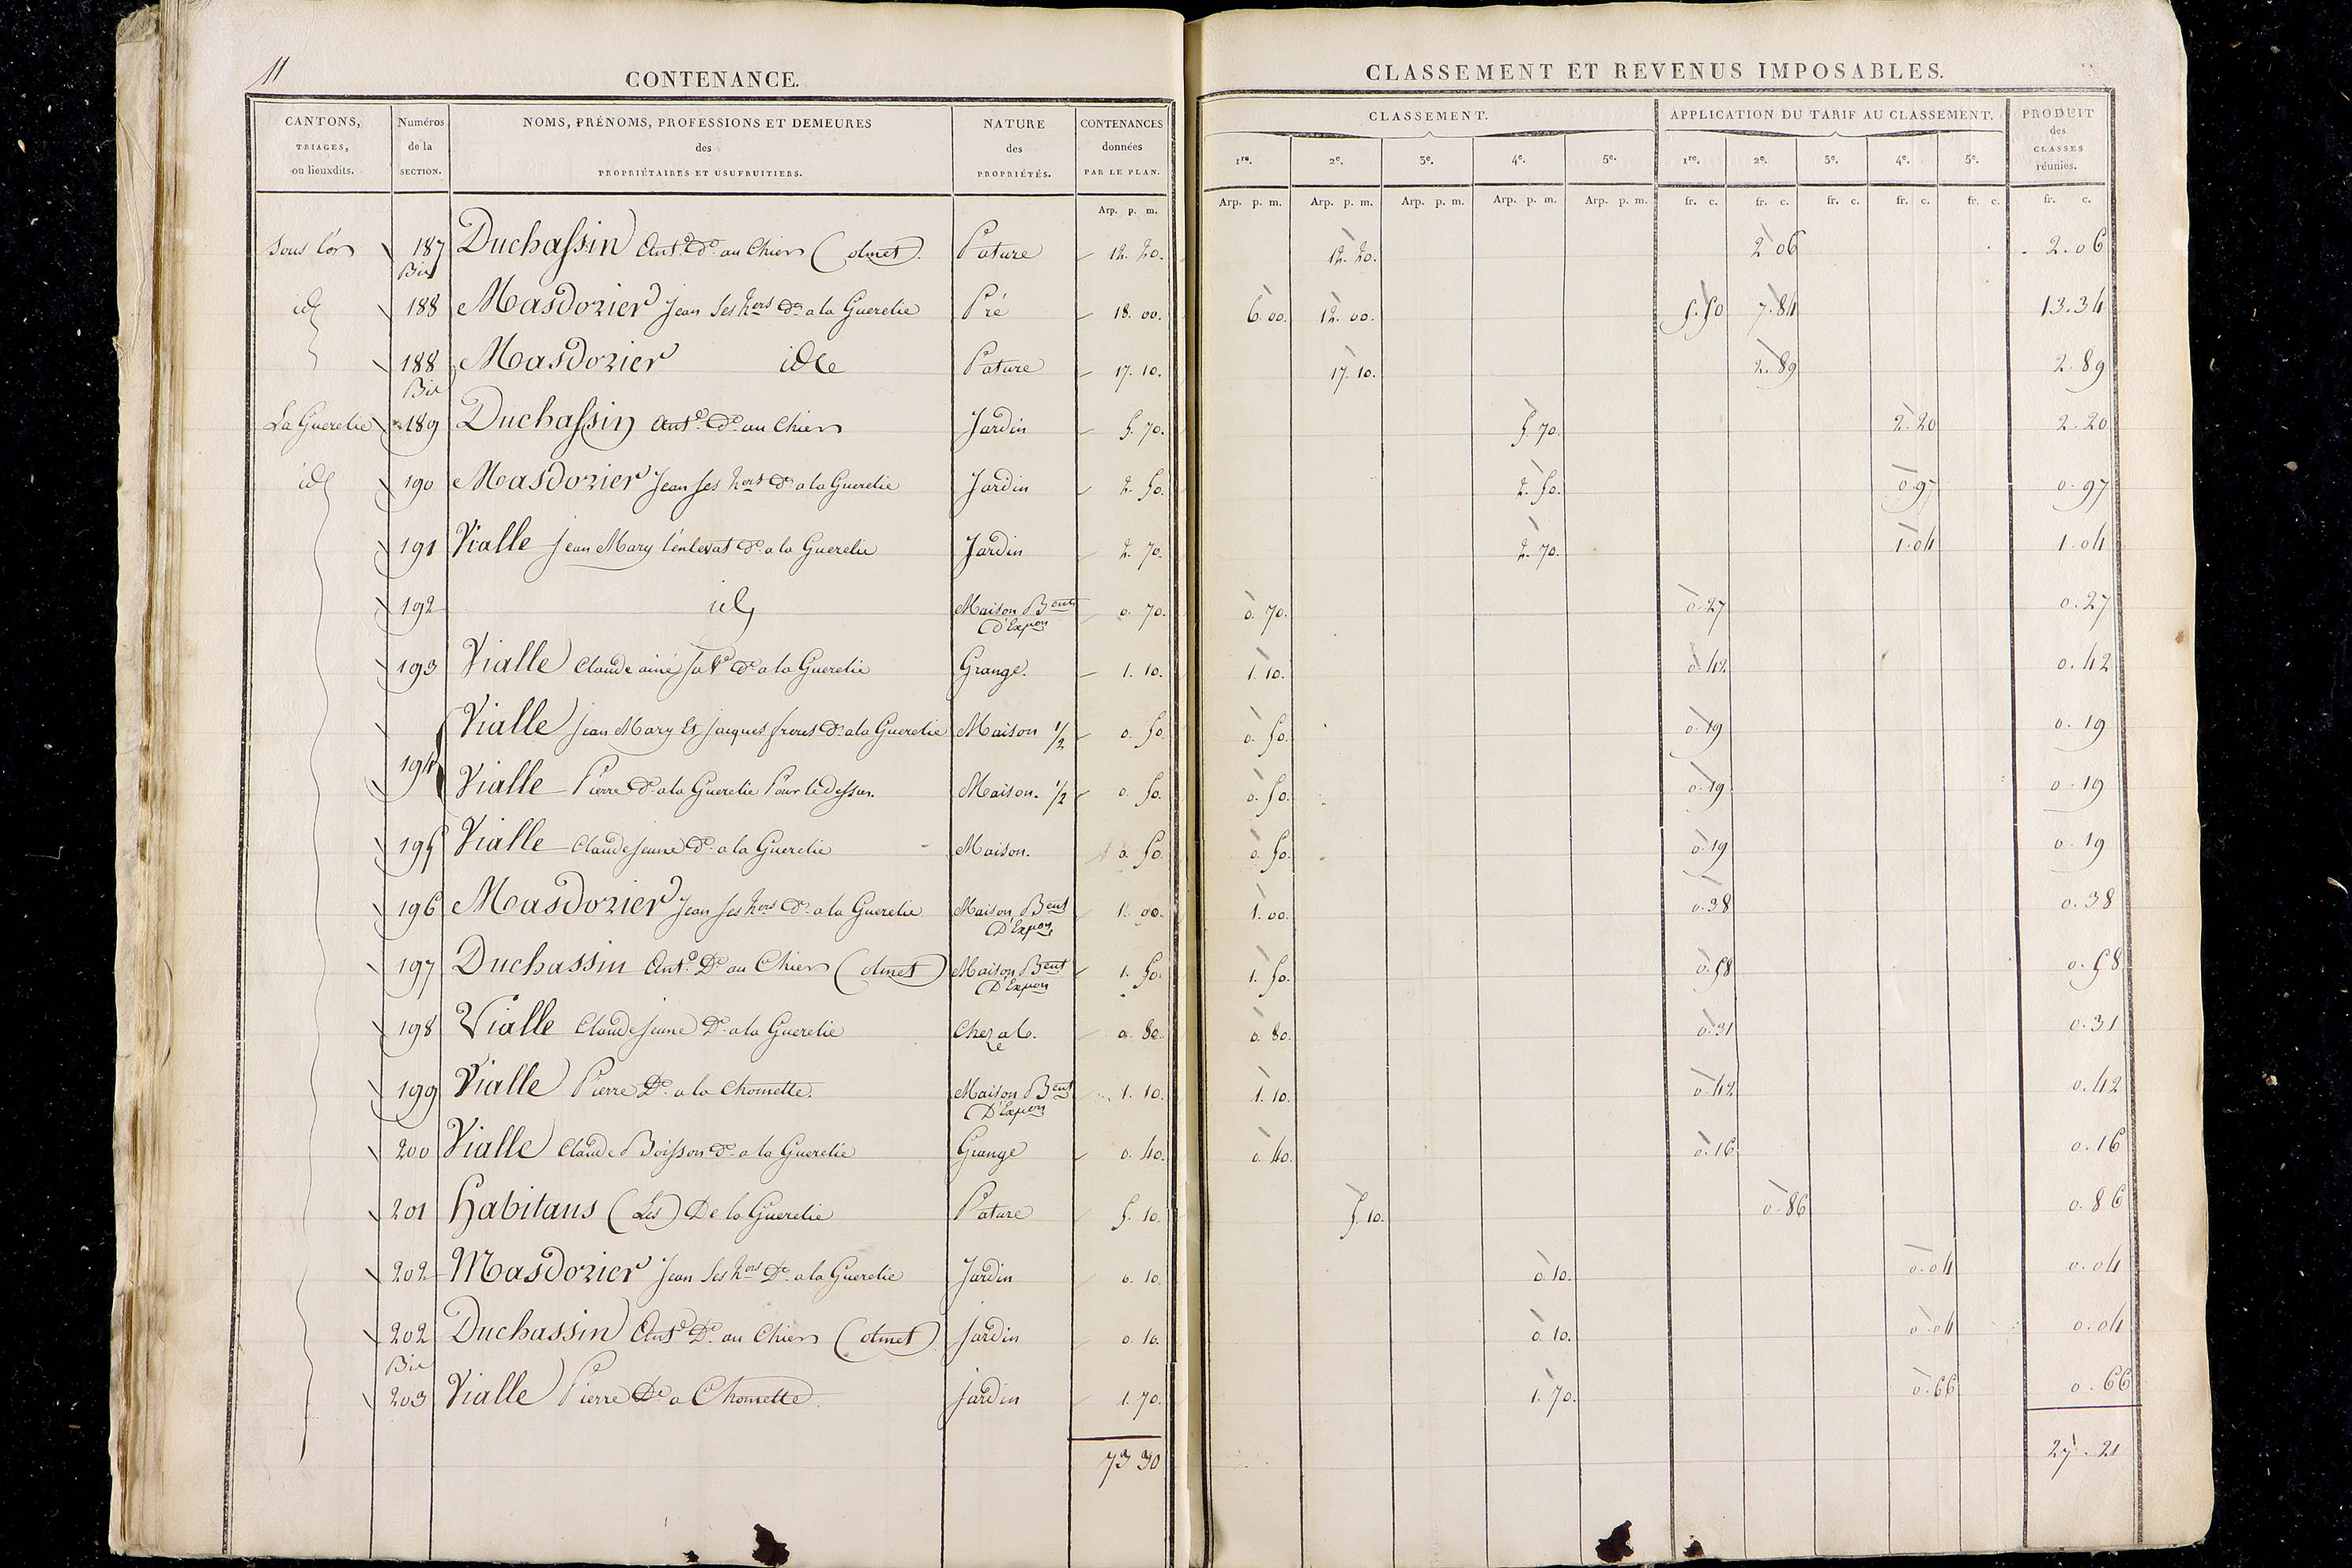 11
CONTENANCE.
CLASSEMENT ET REVENUS IMPOSABLES.
CANTONS, TRIAGES, ou lieuxdits.
Numéros de la SECTION.
NOMS, PRÉNOMS, PROFESSIONS ET DEMEURES des PROPRIÉTAIRES ET USUFRUITIERS.
NATURE des PROPRIÉTÉS.
CONTENANCES données PAR LE PLAN.
CLASSEMENT.
APPLICATION DU TARIF AU CLASSEMENT.
PRODUIT des CLASSES réunies.
1re. 2e. 3e. 4e. 5e. 1re. 2e. 3e. 4e. 5e.
Arp. p. m. Arp. p. m. Arp. p. m. Arp. p. m. Arp. p. m. Arp. p. m. fr. c. fr. c. fr. c. fr. c. fr. c. fr. c.
Sous l'or 187 Bis Duchassin Ant.e d.o au Chier (olmet) Pature 12. 20. 12. 20. 2 06 2.06
id 188 Masdorier Jean Ses hers d.o a la Guerelie Pré 18. 00. 6. 00. 12. 00. 5.50 7.84 13.34
188 Bis Masdorier ide Pature 17. 10. 17. 10. 2.89 2.89
La Guerelie 189 Duchassin Ant.e d.o au Chier Jardin 5. 70. 5. 70. 2.20 2.20
id 190 Masdorier Jean ses hers d.o a la Guerelie Jardin 2. 50. 2. 50. 0.97 0.97
191 Vialle Jean Mary d.o a la Guerelie Jardin 2. 70. 2. 70. 1.04 1.04
192 id Maison Bent D'Expon 0. 70. 0. 70. 0.27 0.27
193 Vialle Claude ainé sa Ve d.o a la Guerelie Grange. 1. 10. 1. 10. 0.42 0.42
194 Vialle Jean Mary Et Jacques freres d.o a la Guerelie Maison 1/2 0. 50. 0. 50. 0.19 0.19
Vialle Pierre d.o a la Guerelie Pour le dessus. Maison. 1/2 0. 50. 0. 50. 0.19 0.19
195 Vialle Claude jeune d.o a la Guerelie Maison. 0. 50. 0. 50. 0.19 0.19
196 Masdorier Jean ses hers d.o a la Guerelie Maison Bent D'Expon 1. 00. 1. 00. 0.38 0.38
197 Duchassin Ant.e D.o au Chier (olmet) Maison Bent D'Expon 1. 50. 1. 50. 0.58 0.58
198 Vialle Claude Jeune D.o a la Guerelie Chezal. 0. 80. 0. 80. 0.31 0.31
199 Vialle Pierre D.o a la Chomette. Maison Bent D'Expon 1. 10. 1. 10. 0.42 0.42
200 Vialle Claude Boisson d.o a la Guerelie Grange 0. 40. 0. 40. 0.16 0.16
201 Habitans (Les) De la Guerelie Pature 5. 10. 5. 10. 0.86 0.86
202 Masdorier Jean Ses hers D.o a la Guerelie Jardin 0. 10. 0. 10. 0.04 0.04
202 Bis Duchassin Ant.e D.o au Chier (olmet) Jardin 0. 10. 0. 10. 0.04 0.04
203 Vialle Pierre D.o a Chomette. Jardin 1. 70. 1. 70. 0.66 0.66
73 30 27.21